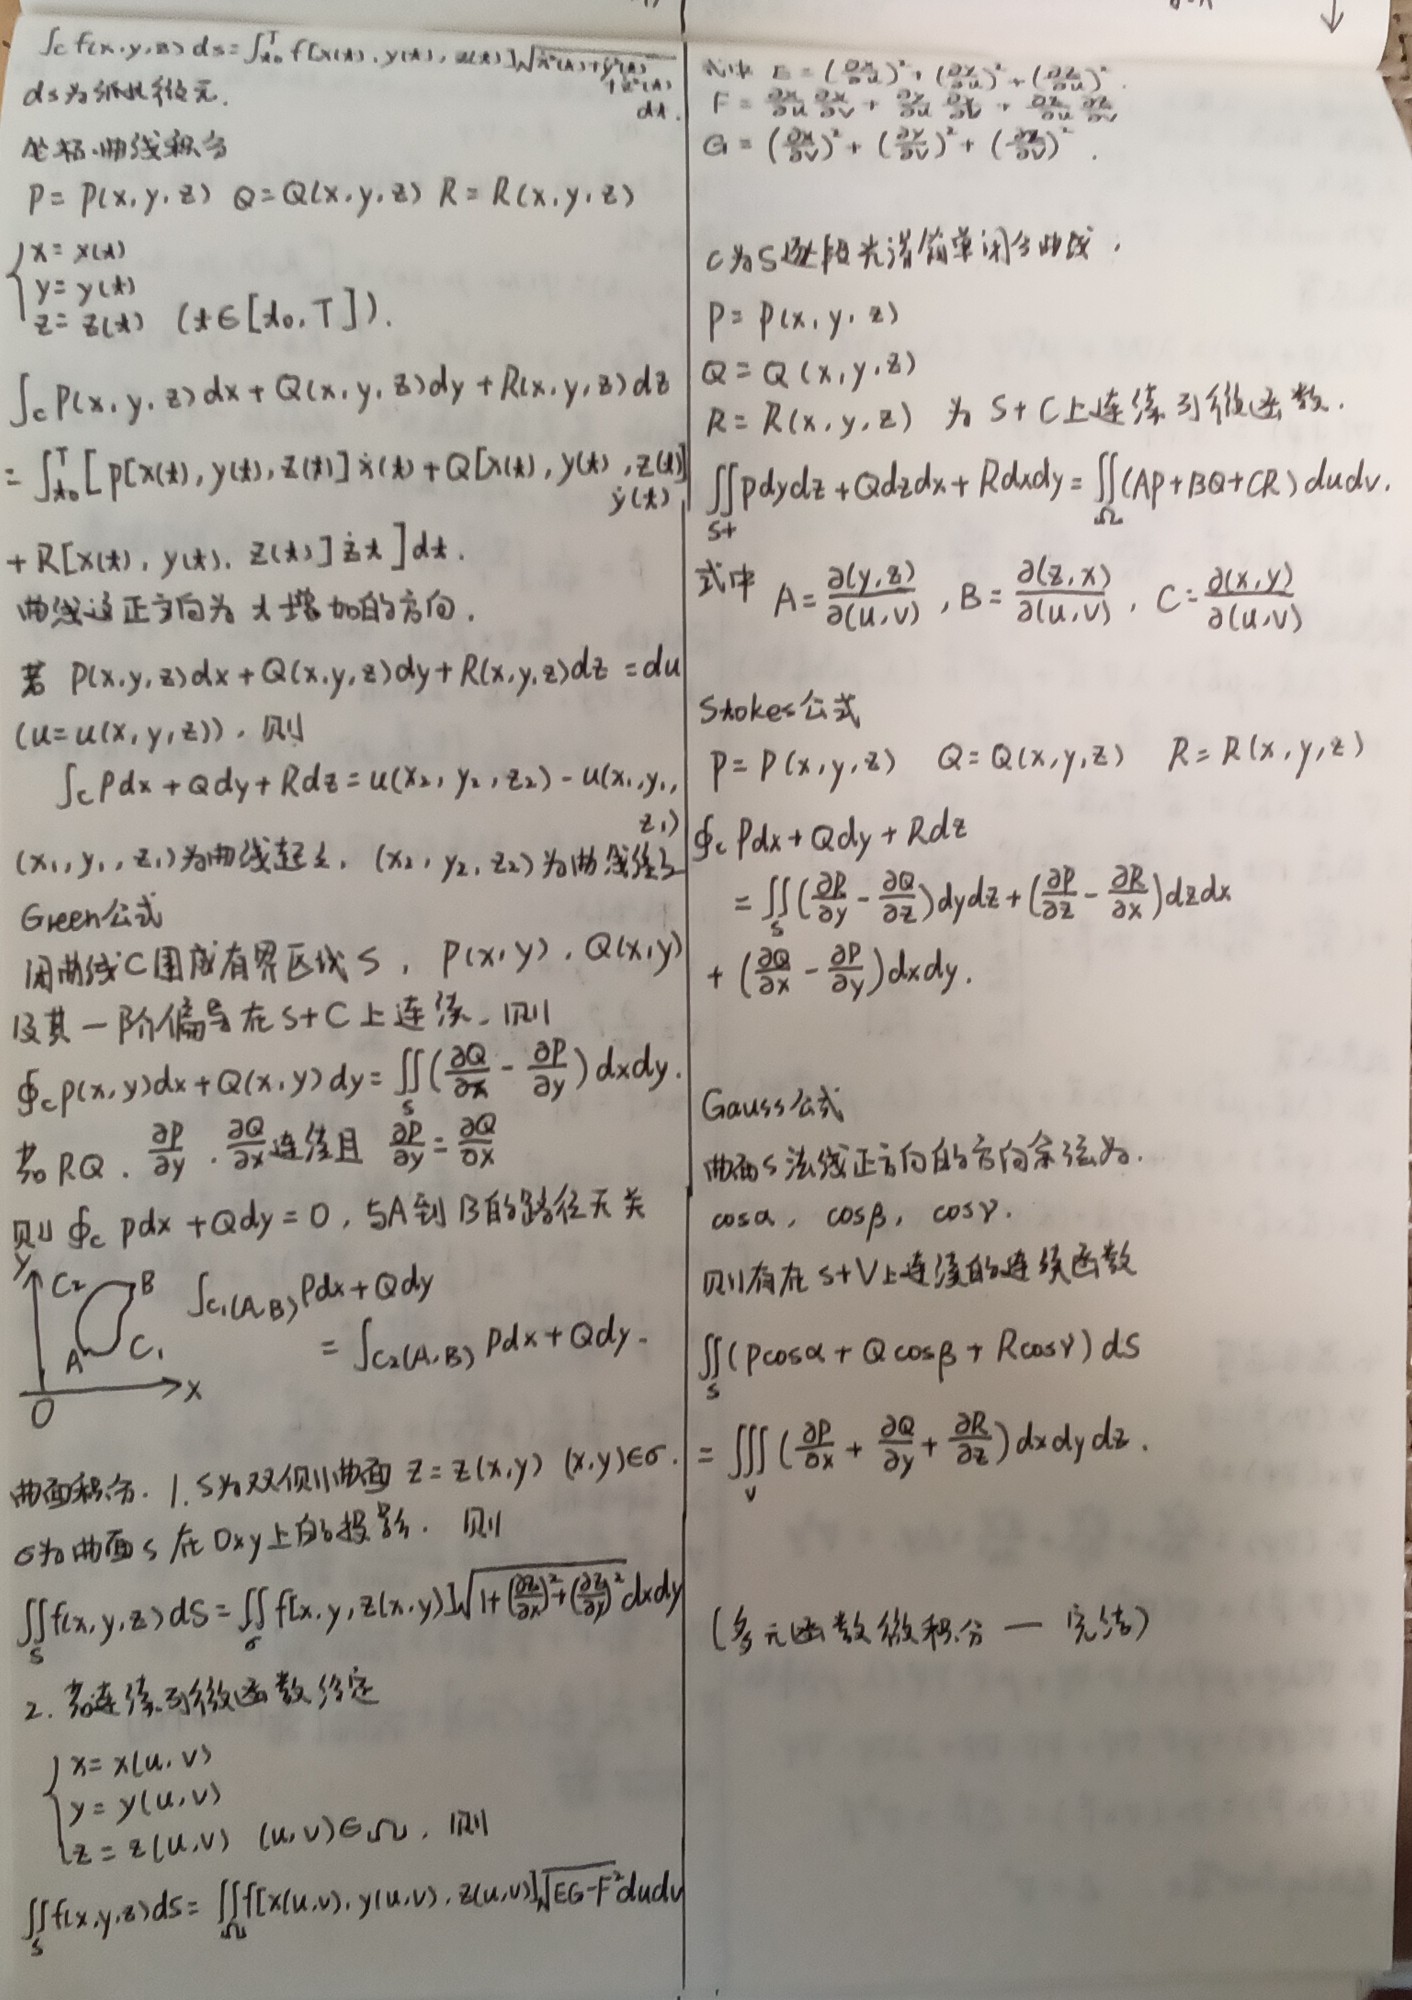 ∫c f(x,y,z) ds = ∫_{t0}^{T} f[x(t), y(t), z(t)]√(ẋ²(t)+ẏ²(t)
+ż²(t))
dt.
ds为弧长微元.
坐标曲线积分
P=P(x,y,z) Q=Q(x,y,z) R=R(x,y,z)
{ x=x(t)
y=y(t)
z=z(t) (t∈[t0,T]).
∫c P(x,y,z)dx+Q(x,y,z)dy+R(x,y,z)dz
= ∫_{t0}^{T} [P[x(t),y(t),z(t)]ẋ(t)+Q[x(t),y(t),z(t)]
ẏ(t)
+R[x(t),y(t),z(t)]żt]dt.
曲线这正方向为t增加的方向.
若 P(x,y,z)dx+Q(x,y,z)dy+R(x,y,z)dz=du
(u=u(x,y,z)), 则
∫c Pdx+Qdy+Rdz=u(x₂,y₂,z₂)-u(x₁,y₁,
z₁)
(x₁,y₁,z₁)为曲线起点, (x₂,y₂,z₂)为曲线终点
Green公式
闭曲线C围成有界区域S, P(x,y), Q(x,y)
及其一阶偏导在S+C上连续, 则
∮c P(x,y)dx+Q(x,y)dy=∬_S(∂Q/∂x-∂P/∂y)dxdy.
若P.Q. ∂P/∂y, ∂Q/∂x连续且 ∂P/∂y=∂Q/∂x
则 ∮c Pdx+Qdy=0, 与A到B的路径无关
y C₂ B
A C₁
O x
∫_{C₁(A,B)} Pdx+Qdy
=∫_{C₂(A,B)} Pdx+Qdy.
曲面积分. 1. S为双侧曲面 z=z(x,y) (x,y)∈σ.
σ为曲面S在Oxy上的投影. 则
∬_S f(x,y,z)dS=∬_σ f[x,y,z(x,y)]√(1+(∂z/∂x)²+(∂z/∂y)²)dxdy
2. 若连续可微函数给定
{ x=x(u,v)
y=y(u,v)
z=z(u,v) (u,v)∈Ω, 则
∬_S f(x,y,z)dS=∬_Ω f[x(u,v),y(u,v),z(u,v)]√(EG-F²)dudv
式中 E=(∂x/∂u)²+(∂y/∂u)²+(∂z/∂u)².
F=∂x/∂u ∂x/∂v+∂y/∂u ∂y/∂v+∂z/∂u ∂z/∂v
G=(∂x/∂v)²+(∂y/∂v)²+(∂z/∂v)².
C为S逐段光滑简单闭合曲线,
P=P(x,y,z)
Q=Q(x,y,z)
R=R(x,y,z) 为S+C上连续可微函数.
∬_{S+} Pdydz+Qdzdx+Rdxdy=∬_Ω(AP+BQ+CR)dudv.
式中 A=∂(y,z)/∂(u,v), B=∂(z,x)/∂(u,v), C=∂(x,y)/∂(u,v)
Stokes公式
P=P(x,y,z) Q=Q(x,y,z) R=R(x,y,z)
∮c Pdx+Qdy+Rdz
=∬_S(∂R/∂y-∂Q/∂z)dydz+(∂P/∂z-∂R/∂x)dzdx
+(∂Q/∂x-∂P/∂y)dxdy.
Gauss公式
曲面S法线正方向的方向余弦为.
cosα, cosβ, cosγ.
则有在S+V上连续的连续函数
∬_S(Pcosα+Qcosβ+Rcosγ)dS
=∭_V(∂P/∂x+∂Q/∂y+∂R/∂z)dxdydz.
(多元函数微积分 — 完结)